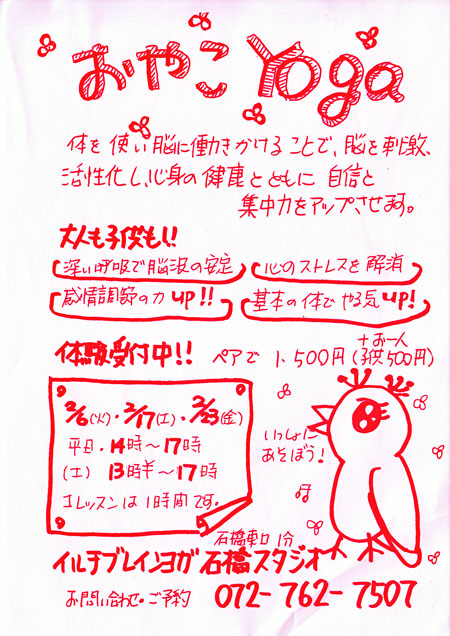 おやこ Yoga
体を使い脳に働きかけることで、脳を刺激、
活性化し、心身の健康とともに 自信と
集中力をアップさせます。
大人も子供も!!
深い呼吸で脳波の安定
心のストレスを解消
感情調節の力 UP!!
基本の体で やる気 UP!
体験受付中!! ペアで 1,500円 (+お一人 子供 500円)
2/6(火)・2/17(土)・2/23(金)
平日・14時〜17時
(土) 13時半〜17時
1レッスンは1時間です。
いっしょに
あそぼう!
石橋東口 1分
イルチブレインヨガ 石橋スタジオ
お問い合わせ・ご予約 072-762-7507